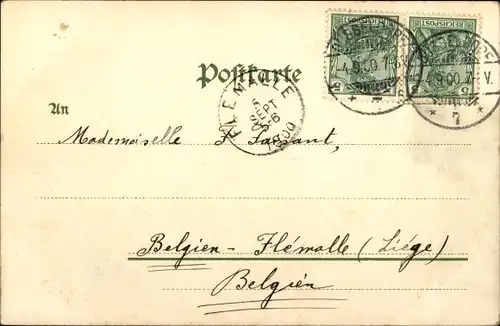 REICHSPOST
REICHSPOST
4.9.00.7
4.9.00.7 V.
Postkarte
FLEMALLE
5 SEPT
5-6
1900
An
Mademoiselle
Belgien - Flémalle (Liége)
Belgien